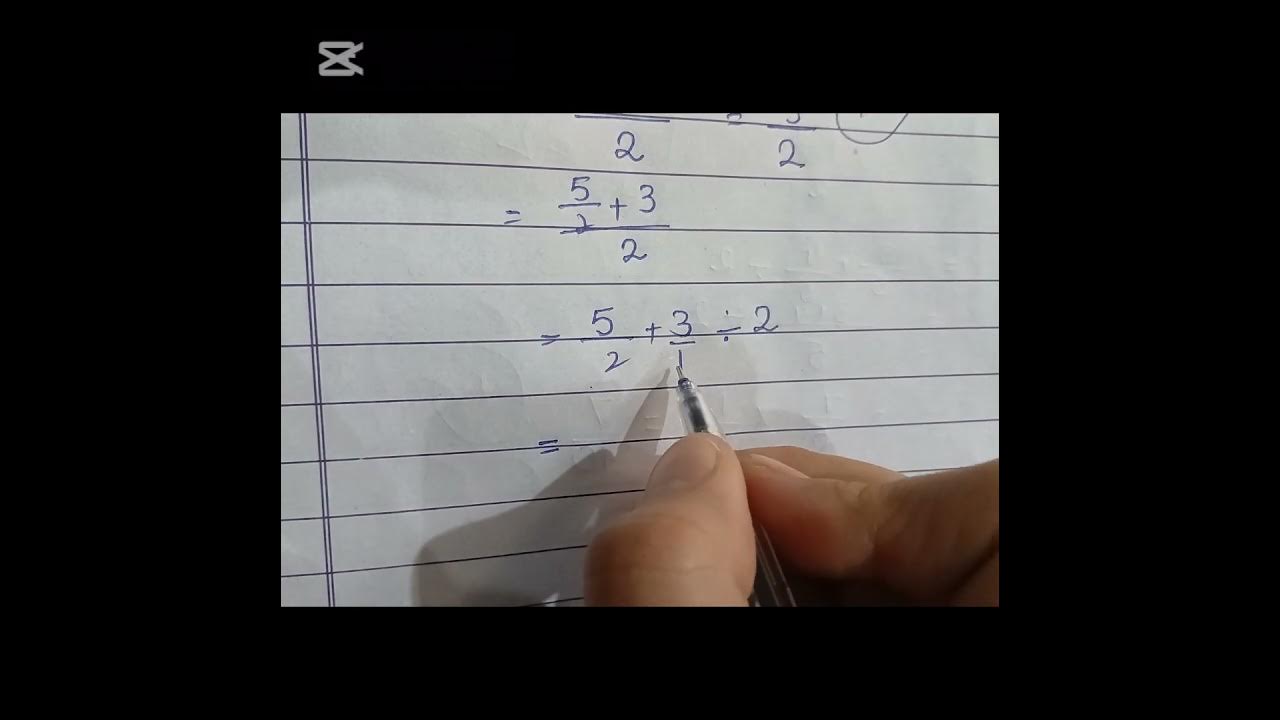 2 = 2
= 5/2 + 3
2
= 5/2 + 3/1 ÷ 2
=